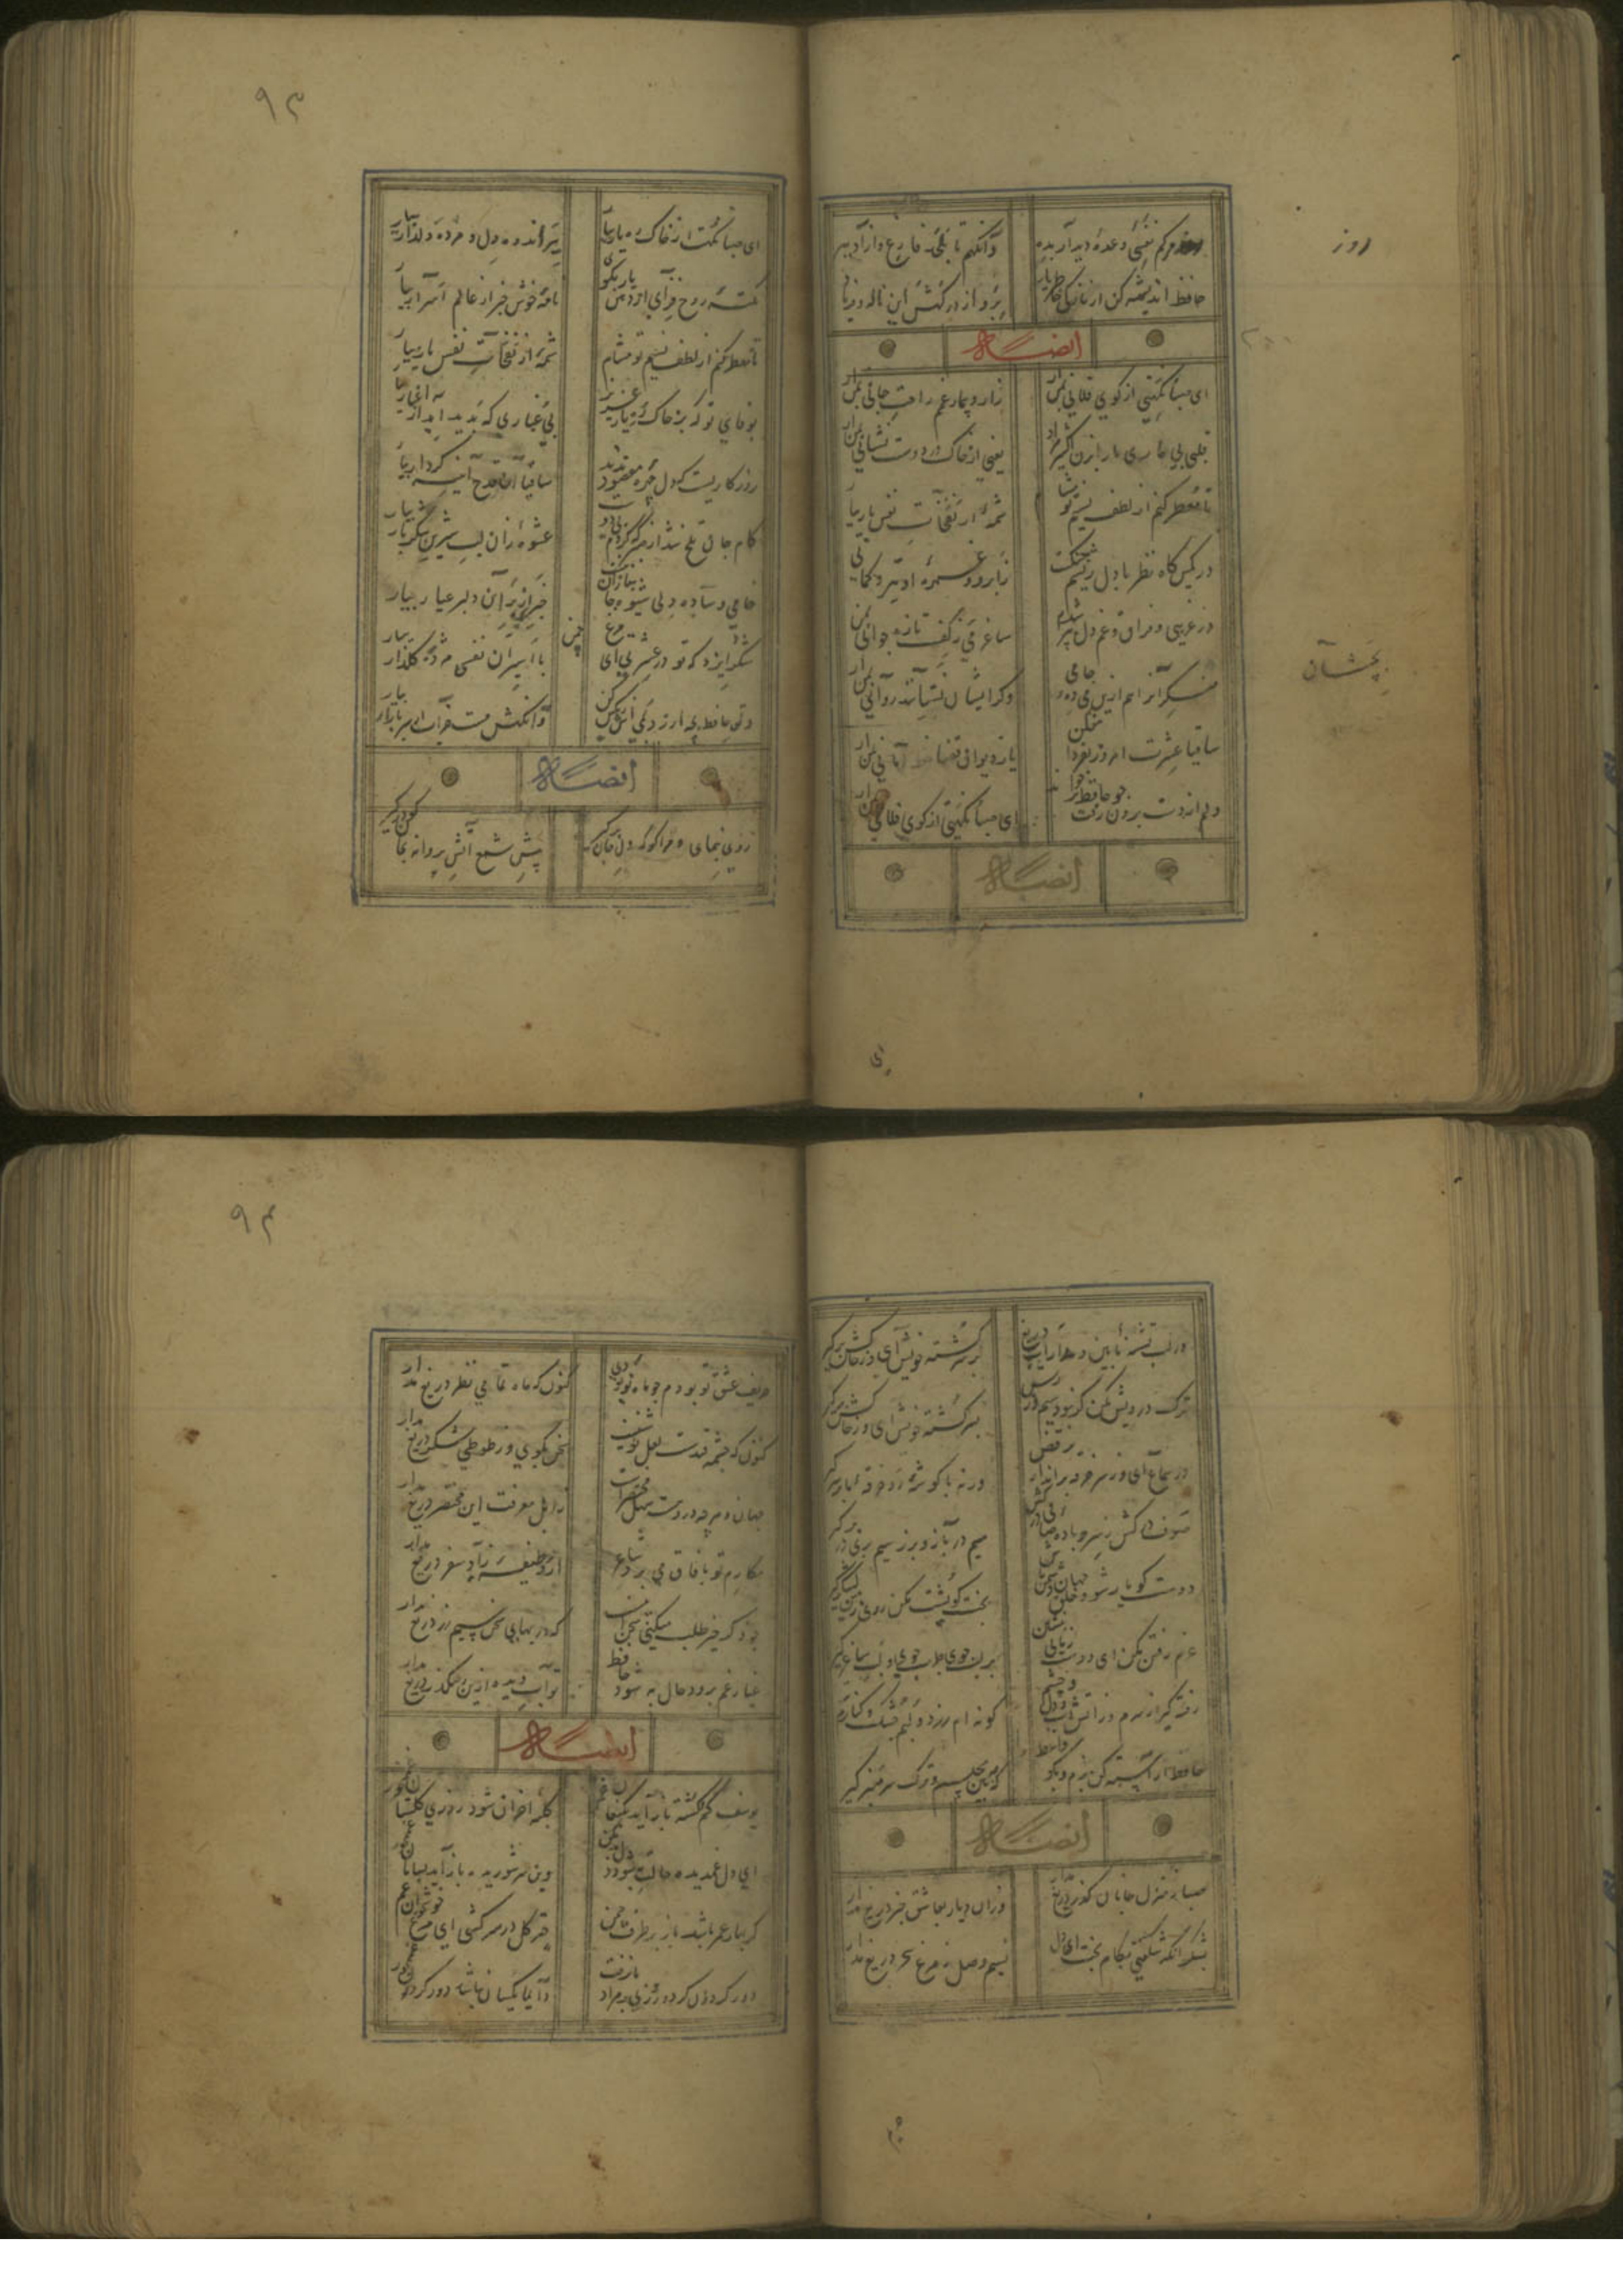 روز مرگم نفسی وعدۀ دیدار بده
وانگهم تا بلحد فارغ و ازاد ببر
حافظ اندیشه کن از نازکی خاطر یار
برو از درگهش این ناله و فریاد
روز
ایضاً
ای صبا نکهتی از کوی فلانی بمن آر
زار و بیمار غمم راحت جانی بمن آر
قلب بی
یعنی از خاک در دوست نشانی بمن آر
تا معطر کنم از لطف نسیم تو مشام
شمۀ از نفحات نفس یار بیار
در کمین گاه نظر با دل خویشم جنگست
ز ابرو و غمزۀ او تیر و کمانی
در غریبی و فراق و غم دل پیر شدم
ساغر می ز کف تازه جوانی بمن آر
منکرانرا هم ازین می دو سه جامی
وکر ایشان نستانند روانی بمن آر
بچشان
ساقیا عشرت امروز بفردا مفکن
یا ز دیوان قضا خط امانی بمن آر
دلم از دست برون رفت چو حافظ
ای صبا نکهتی از کوی فلانی بمن آر
ایضاً
ای
۹۳
ای صبا نکهت از خاک ره یار بیار
ببر اندوه دل و مژدۀ دلدار بیار
نکتۀ روح فزای از دهن یار بگو
نامۀ خوش خبر از عالم اسرار بیار
تا معطر کنم از لطف نسیم تو مشام
شمۀ از نفحات نفس یار بیار
بوفای تو که بر خاک ره یار عزیز
بی غباری که پدید آید از اغیار
روزکاریست که دل چهرۀ مقصود ندید
ساقیا آن قدح آینه کردار بیار
کام جان تلخ شد از صبر که کردم بی دوست
عشوۀ زان لب شیرین شکربار بیار
خامی و ساده دلی شیوۀ جانبازان
خبری از بر آن دلبر عیار بیار
شکر ایزد که تو در عشرتی ای مرغ چمن
با اسیران قفس مژدۀ گلزار بیار
دلق حافظ بچه ارزد بمی اش رنکین کن
وانکهش مست خراب از سر بازار بیار
ایضاً
روی بنمای و مرا گو که دل از جان برگیر
پیش شمع آتش پروانه بجان گو درگیر
در لب تشنۀ ما بین و مدار آب دریغ
بر سر کشته خویش آی و ز خاکش برگیر
ترک درویش مکن گر نبود سیم و زرش
بر سر کشته خویش آی و ز خاکش برگیر
در سماع آی و ز سر خرقه برانداز و برقص
ورنه با گوشه رو و خرقه ما بر سر گیر
صوف برکش ز سر و باده صافی درکش
سیم در باز و بزر سیم بری در بر گیر
دوست کو یار شو و جهان دشمن باش
بخت کو پشت مکن روی زمین لشکر گیر
عزم رفتن مکن ای دوست زمانی
بر لب جوی طرب جوی و بکف ساغر گیر
رفته گیر از برم و ز آتش و آب دل و چشم
گونه ام زرد و لبم خشک و کنارم
حافظ آراسته کن بزم و بگو واعظ
که ببین مجلسم و ترک سر منبر گیر
ایضاً
صبا ز منزل جانان گذر دریغ مدار
وزان دیار بعاشق خبر دریغ مدار
بشکر آنکه شکفتی بکام بخت ای دل
نسیم وصل ز مرغ سحر دریغ مدار
۹۴
حریف عشق تو بودم چو ماه نو بودی
کنون که ماه تمامی نظر دریغ مدار
کنون که چشمه قندست لعل نوشینت
سخن بگوی و ز طوطی شکر دریغ مدار
جهان و هر چه دروست سهل و مختصرست
ز اهل معرفت این مختصر دریغ مدار
مکارم تو بافاق می برد شاعر
ازو وظیفه و زاد سفر دریغ مدار
چو ذکر خیر طلب میکنی سخن اینست
که در بهای سخن سیم و زر دریغ مدار
غبار غم برود حال به شود حافظ
تو آب دیده ازین رهگذر دریغ مدار
ایضاً
یوسف گم گشته باز آید بکنعان غم
کلبه احزان شود روزی گلستان غم مخور
ای دل غمدیده حالت به شود دل بد مکن
وین سر شوریده باز آید بسامان غم مخور
گر بهار عمر باشد باز بر طرف چمن
چتر گل در سر کشی ای مرغ خوشخوان غم
دور گردون گر دو روزی بر مراد ما نرفت
دائما یکسان نباشد دور گردون غم مخور